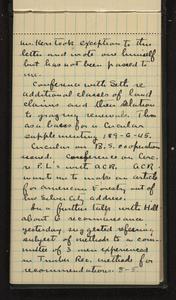 Mr. Kerr took exception to this
letter and wrote one himself
but has not been passed to
me.
Conference with Seth re
additional classes of land
claims and their relation
to grazing renewals. This
as a basis for a Circular
supplementing 189-G-45.
Circular on B.S. cooperation
issued. Conference on Circ.
re P.L.'s with A.C.R. A.C.R.
wants me to make an article
for American Forestry out of
his Silver City address.
In a further talk with Hall
about G reconnaissance
yesterday, suggested referring
subject of methods to a com-
mittee of 3 men experienced
in Timber Rec. methods for
recommendation. 8-5.